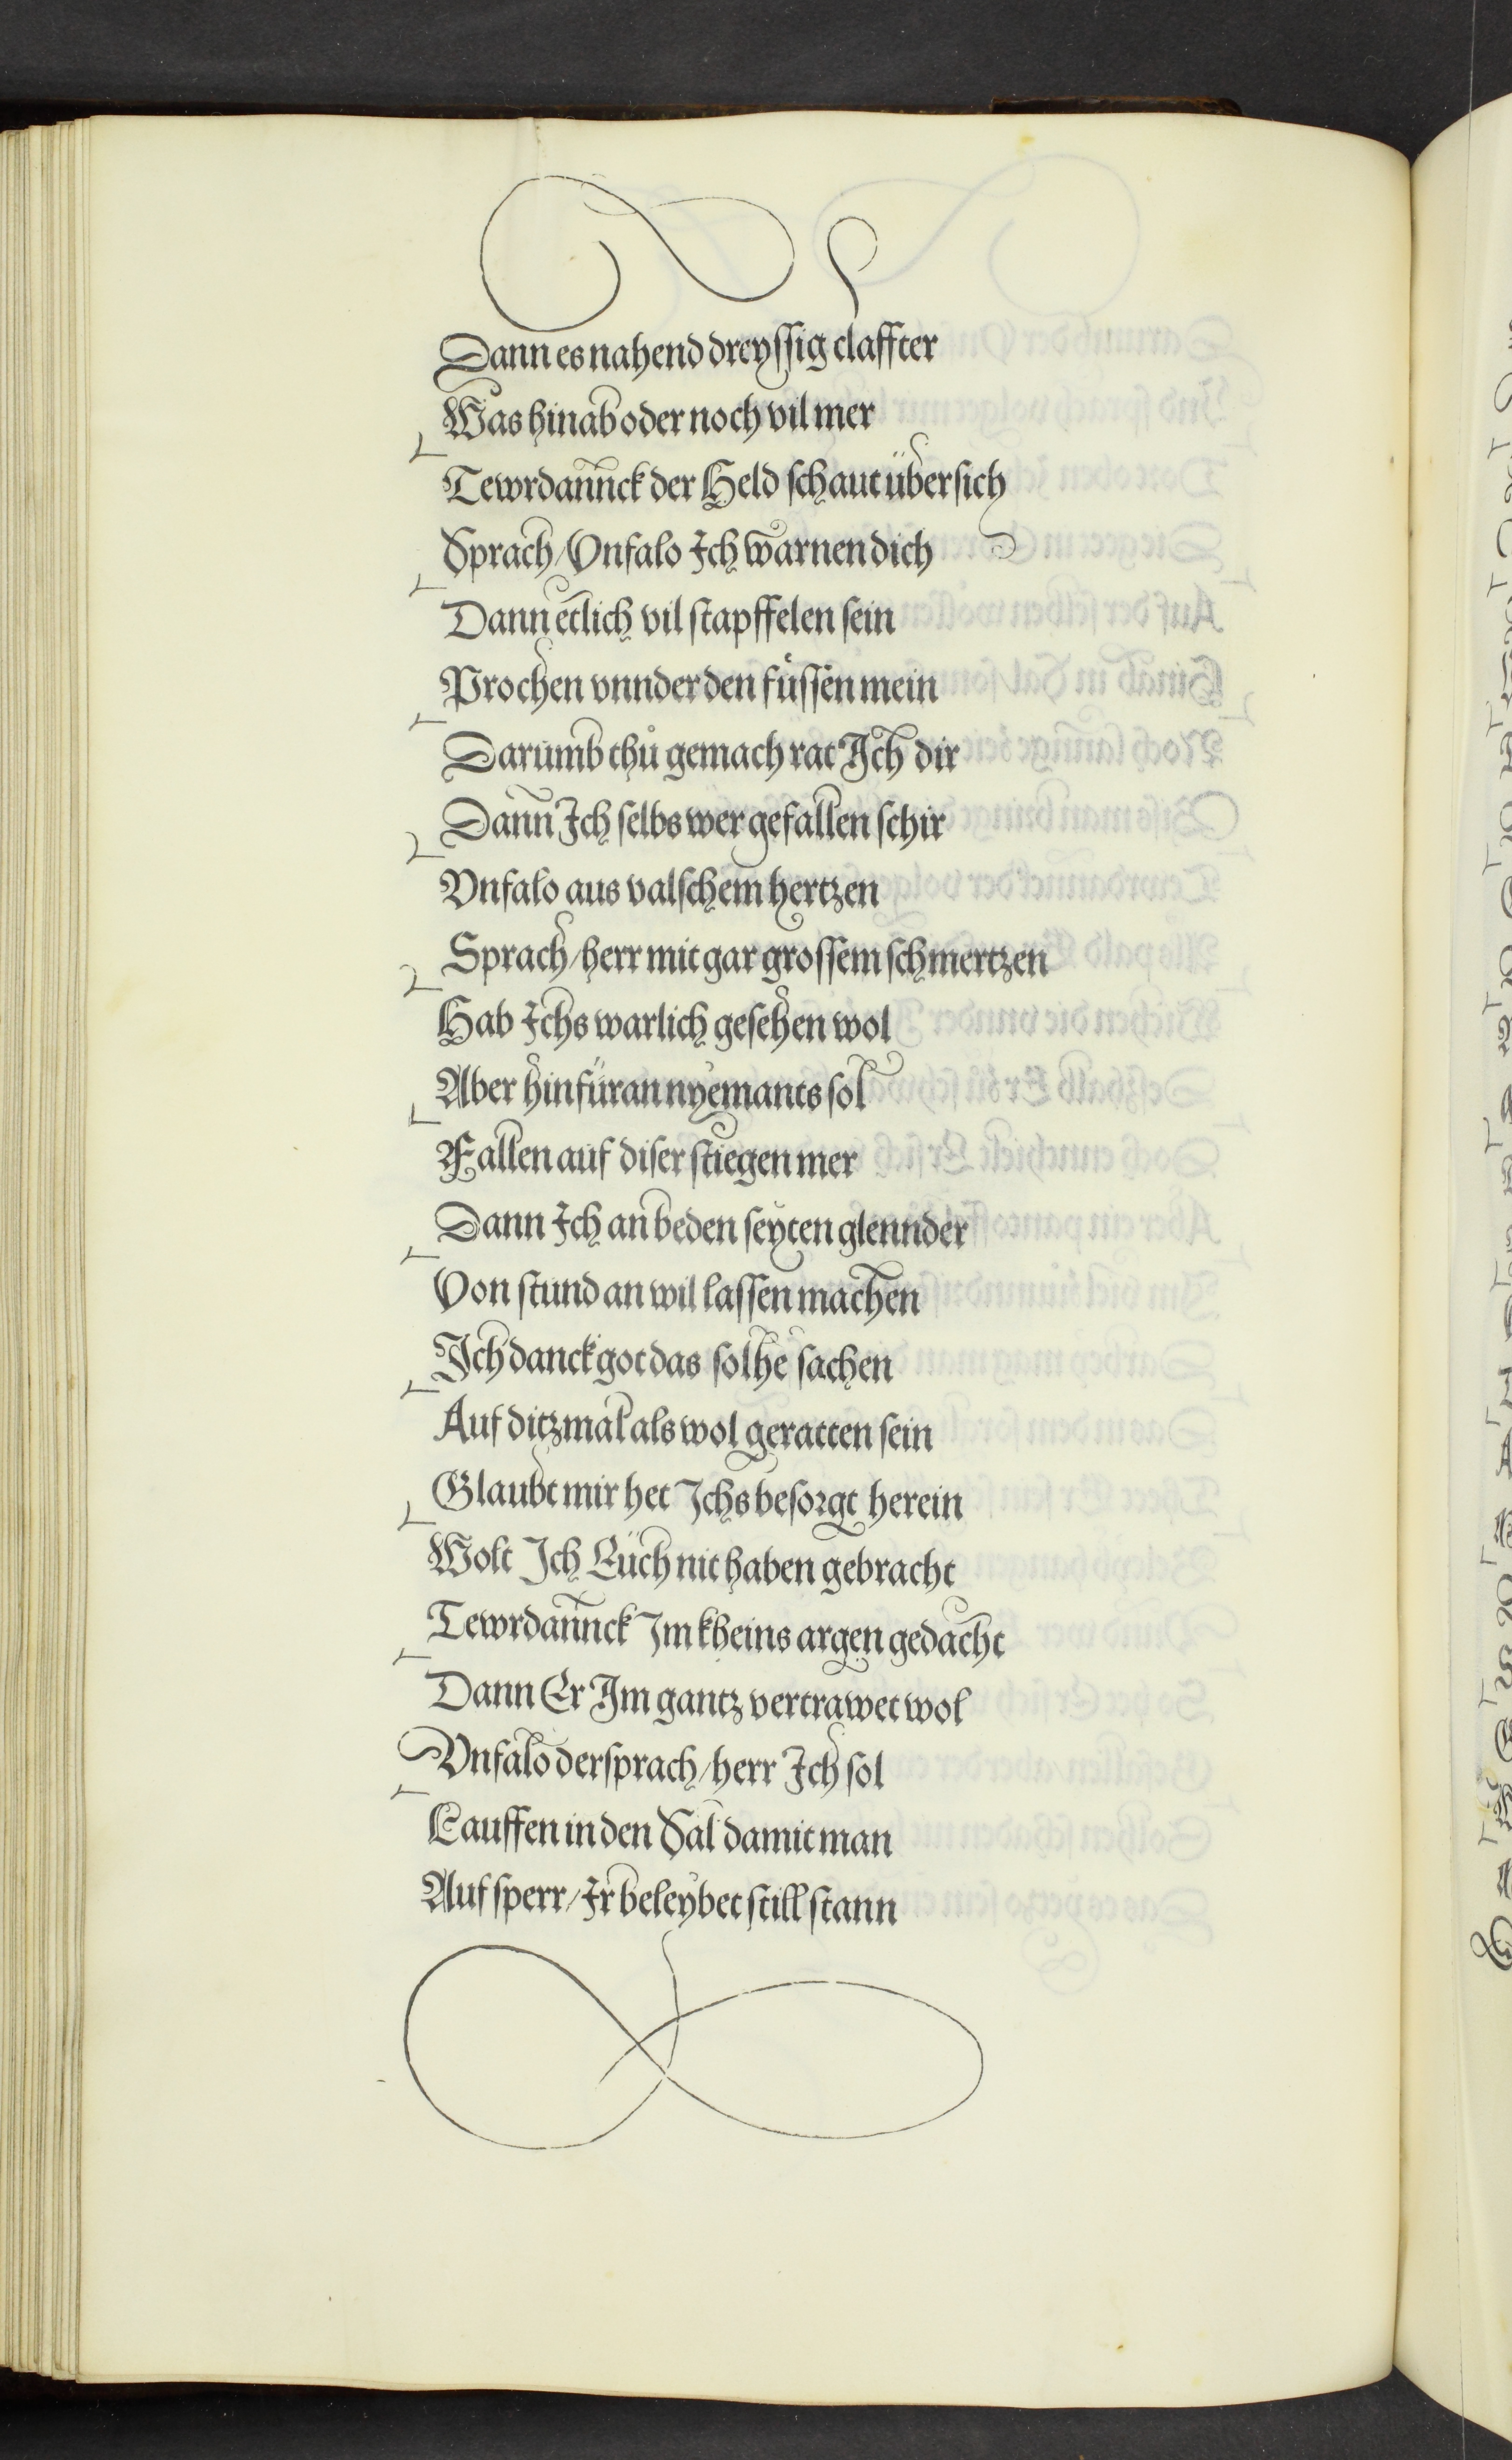 Dann es nahend dreyſſig claffter
Was hinab oder noch vil mer
Tewrdannck der Held ſchaut überſich
Sprach / Vnfalo Ich warnen dich
Dann etlich vil ſtapffelen ſein
Prochen vnnder den füſſen mein
Darumb thů gemach rat Ich dir
Dann Ich ſelbs wer gefallen ſchir
Vnfalo aus valſchem hertzen
Sprach / herr mit gar groſſem ſchmertzen
Hab Ichs warlich geſehen wol
Aber hinfüran nyemants ſol
Fallen auf diſer ſtiegen mer
Dann Ich an beden ſeyten glennder
Von ſtund an wil laſſen machen
Ich danck got das ſolhe ſachen
Auf ditzmal als wol geratten ſein
Glaubt mir het Ichs beſorgt herein
Wolt Ich Eüch nit haben gebracht
Tewrdannck Im kheins argen gedacht
Dann Er Im gantz vertrawet wol
Vnfalo der ſprach / herr Ich ſol
Lauffen in den Sal damit man
Auf ſperr / Ir beleybet ſtill ſtann